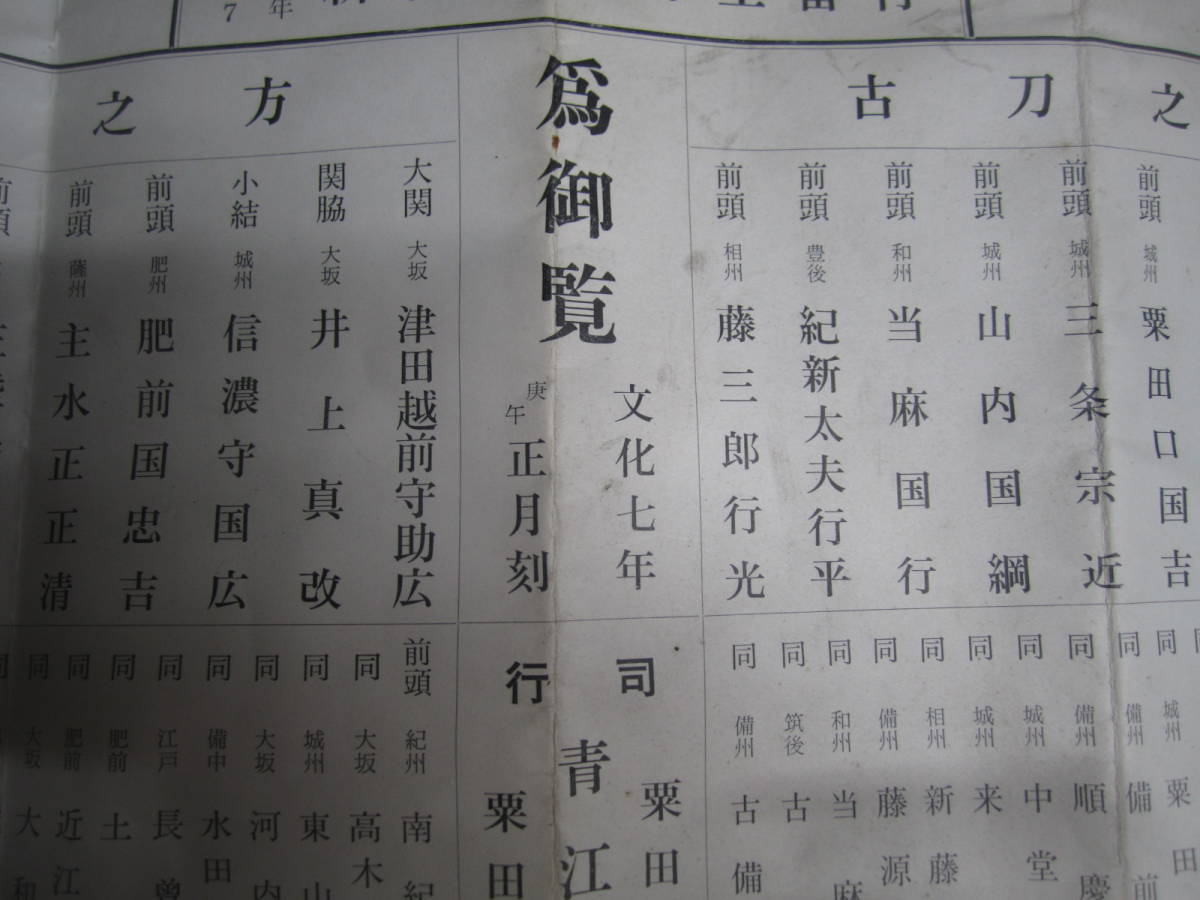 7年
古刀之
方之
為御覧
文化七年
庚午正月刻
前頭 城州 粟田口国吉
前頭 城州 三条宗近
前頭 城州 山内国綱
前頭 和州 当麻国行
前頭 豊後 紀新太夫行平
前頭 相州 藤三郎行光
大関 大坂 津田越前守助広
関脇 大坂 井上真改
小結 城州 信濃守国広
前頭 肥州 肥前国忠吉
前頭 薩州 主水正正清
前頭
同 城州 粟田
同 備州 備前
同 備州 順慶
同 城州 中堂
同 城州 来
同 相州 新藤
同 備州 藤源
同 和州 当麻
同 筑後 古
同 備州 古備
司 粟田
青江
行 粟田
前頭 紀州 南紀
同 大坂 高木
同 城州 東山
同 大坂 河内
同 備中 水田
同 江戸 長曽
同 肥前 土
同 肥前 近江
同 大坂 大和
同